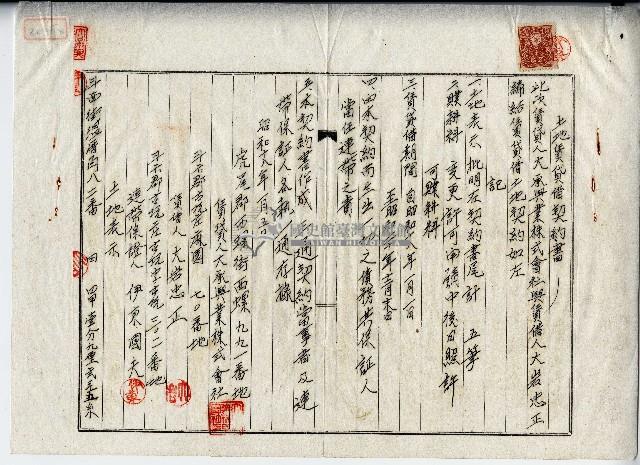 土地賃貸借契約書
此次賃貸人大承興業株式會社與賃借人大岩忠正
締結賃貸借土地契約如左
記
一、土地表示批明在契約書尾計 五筆
二、賧耕料 変更許可申請中後日照許
可賧耕料
三、賃貸借期間 自昭和 年 月一日
至昭 年 月末日
四、由本契約而生出一切之債務共保証人
當任連帶之責
五、本契約書作成 通契約當事者及連
帶保証人各執 通存據
昭和十八年 月 日
虎尾郡西螺街西螺九九一番地
賃貸人大承興業株式會社
斗六郡古坑庄麻園 七〇番地
賃借人 大岩忠正
斗六郡古坑庄古坑字古坑三〇二番地
連帶保證人 伊東國夫
土地表示
斗西街 八二番 田 甲壹分九厘 毛五糸
國史館臺灣文獻館
TAIWAN HISTORICA